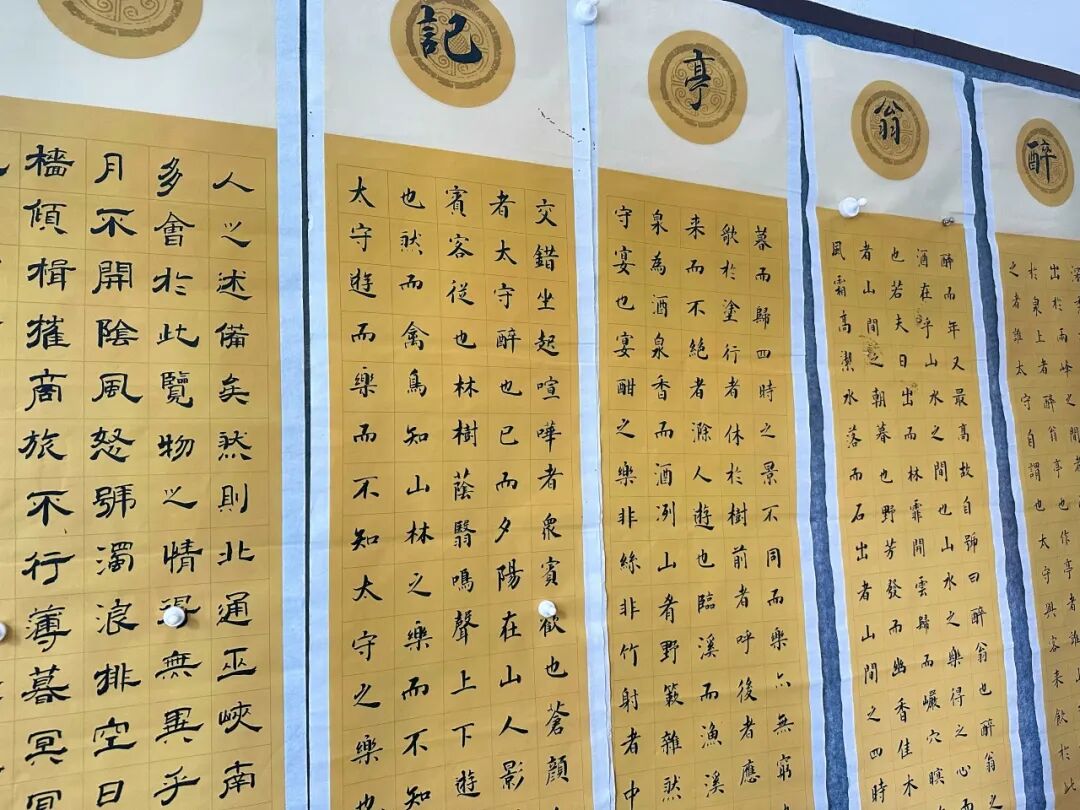 醉
出於兩峰之間者
於泉上者醉翁亭也作亭者誰山
之者誰太守自謂也太守與客来飲於此
翁
醉而年又最高故自號曰醉翁也醉翁
酒在乎山水之間也山水之樂得之心而
也若夫日出而林霏開雲歸而巖穴暝
者山間之朝暮也野芳發而幽香佳木
風霜高潔水落而石出者山間之四時
亭
暮而歸四時之景不同而樂亦無窮
歌於塗行者休於樹前者呼後者應
来而不絕者滁人遊也臨溪而漁溪
泉為酒泉香而酒洌山肴野蔌雜然
守宴也宴酣之樂非絲非竹射者中
記
交錯坐起喧嘩者衆賓歡也蒼顏
者太守醉也已而夕陽在山人影
賓客從也林樹蔭翳鳴聲上下遊
也然而禽鳥知山林之樂而不知
太守遊而樂而不知太守之樂也
人之述備矣然則北通巫峽南
多會於此覽物之情得無異乎
月不開陰風怒號濁浪排空日
檣傾楫摧商旅不行薄暮冥冥